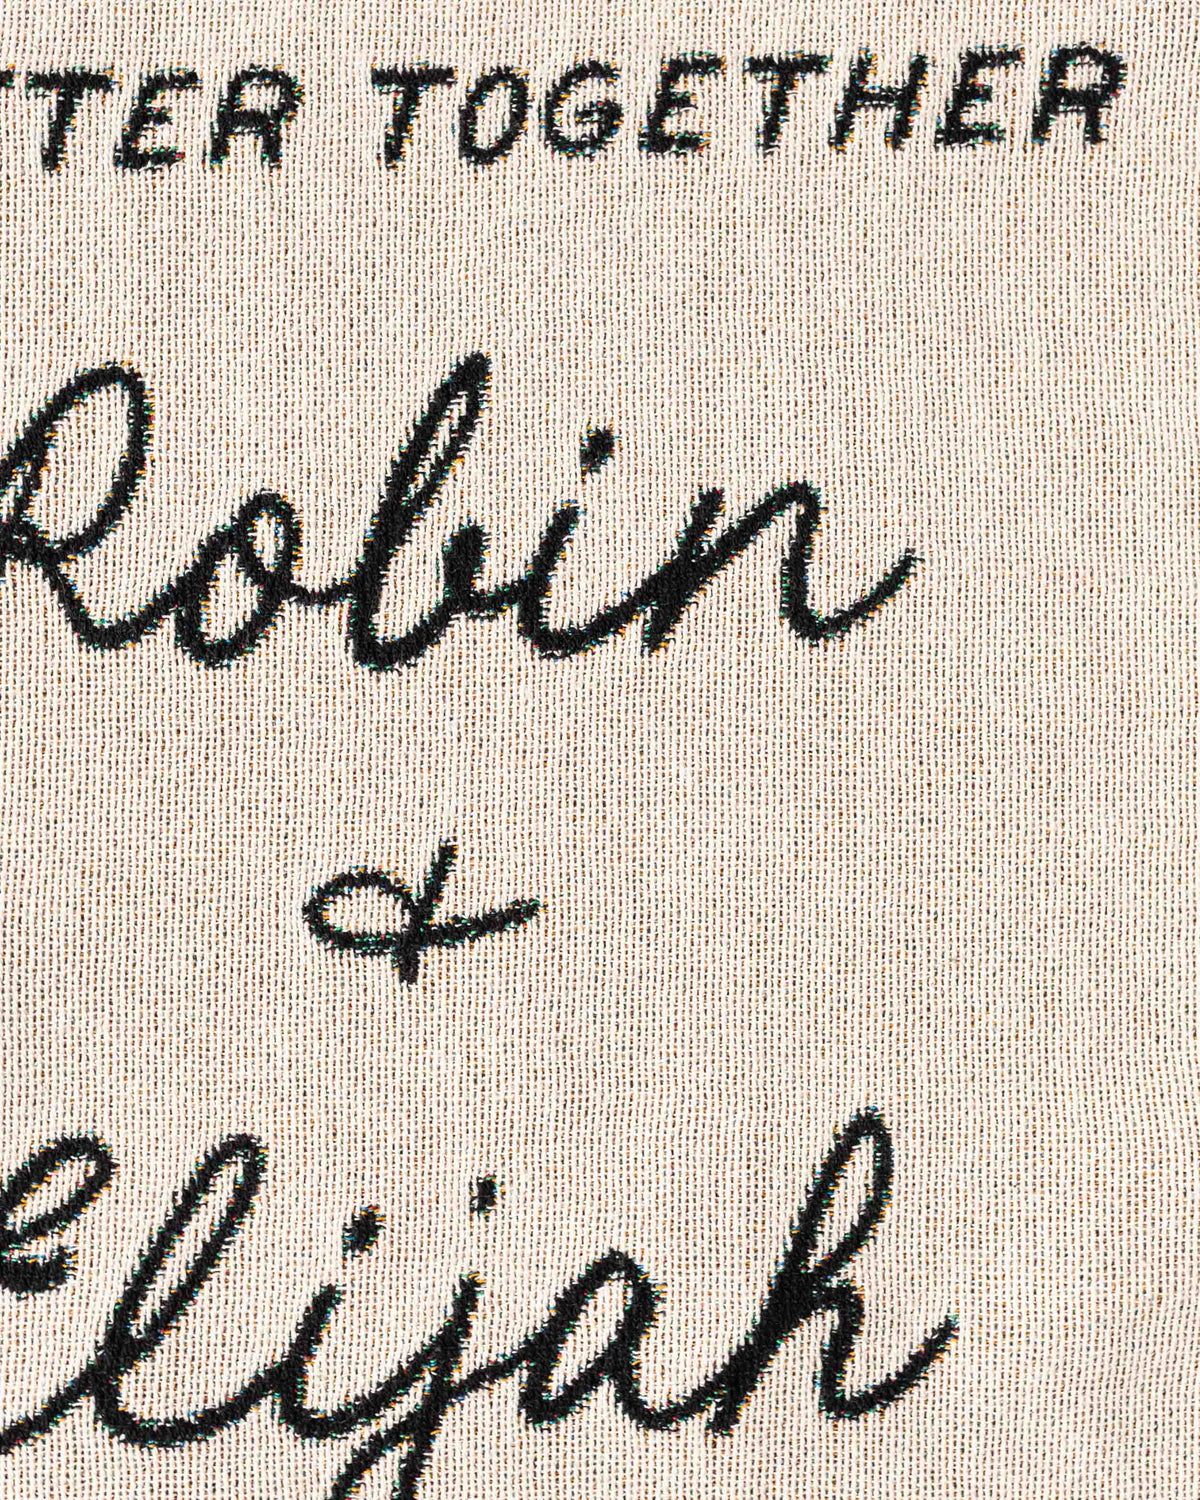 TTER TOGETHER
Robin
&
Elijah